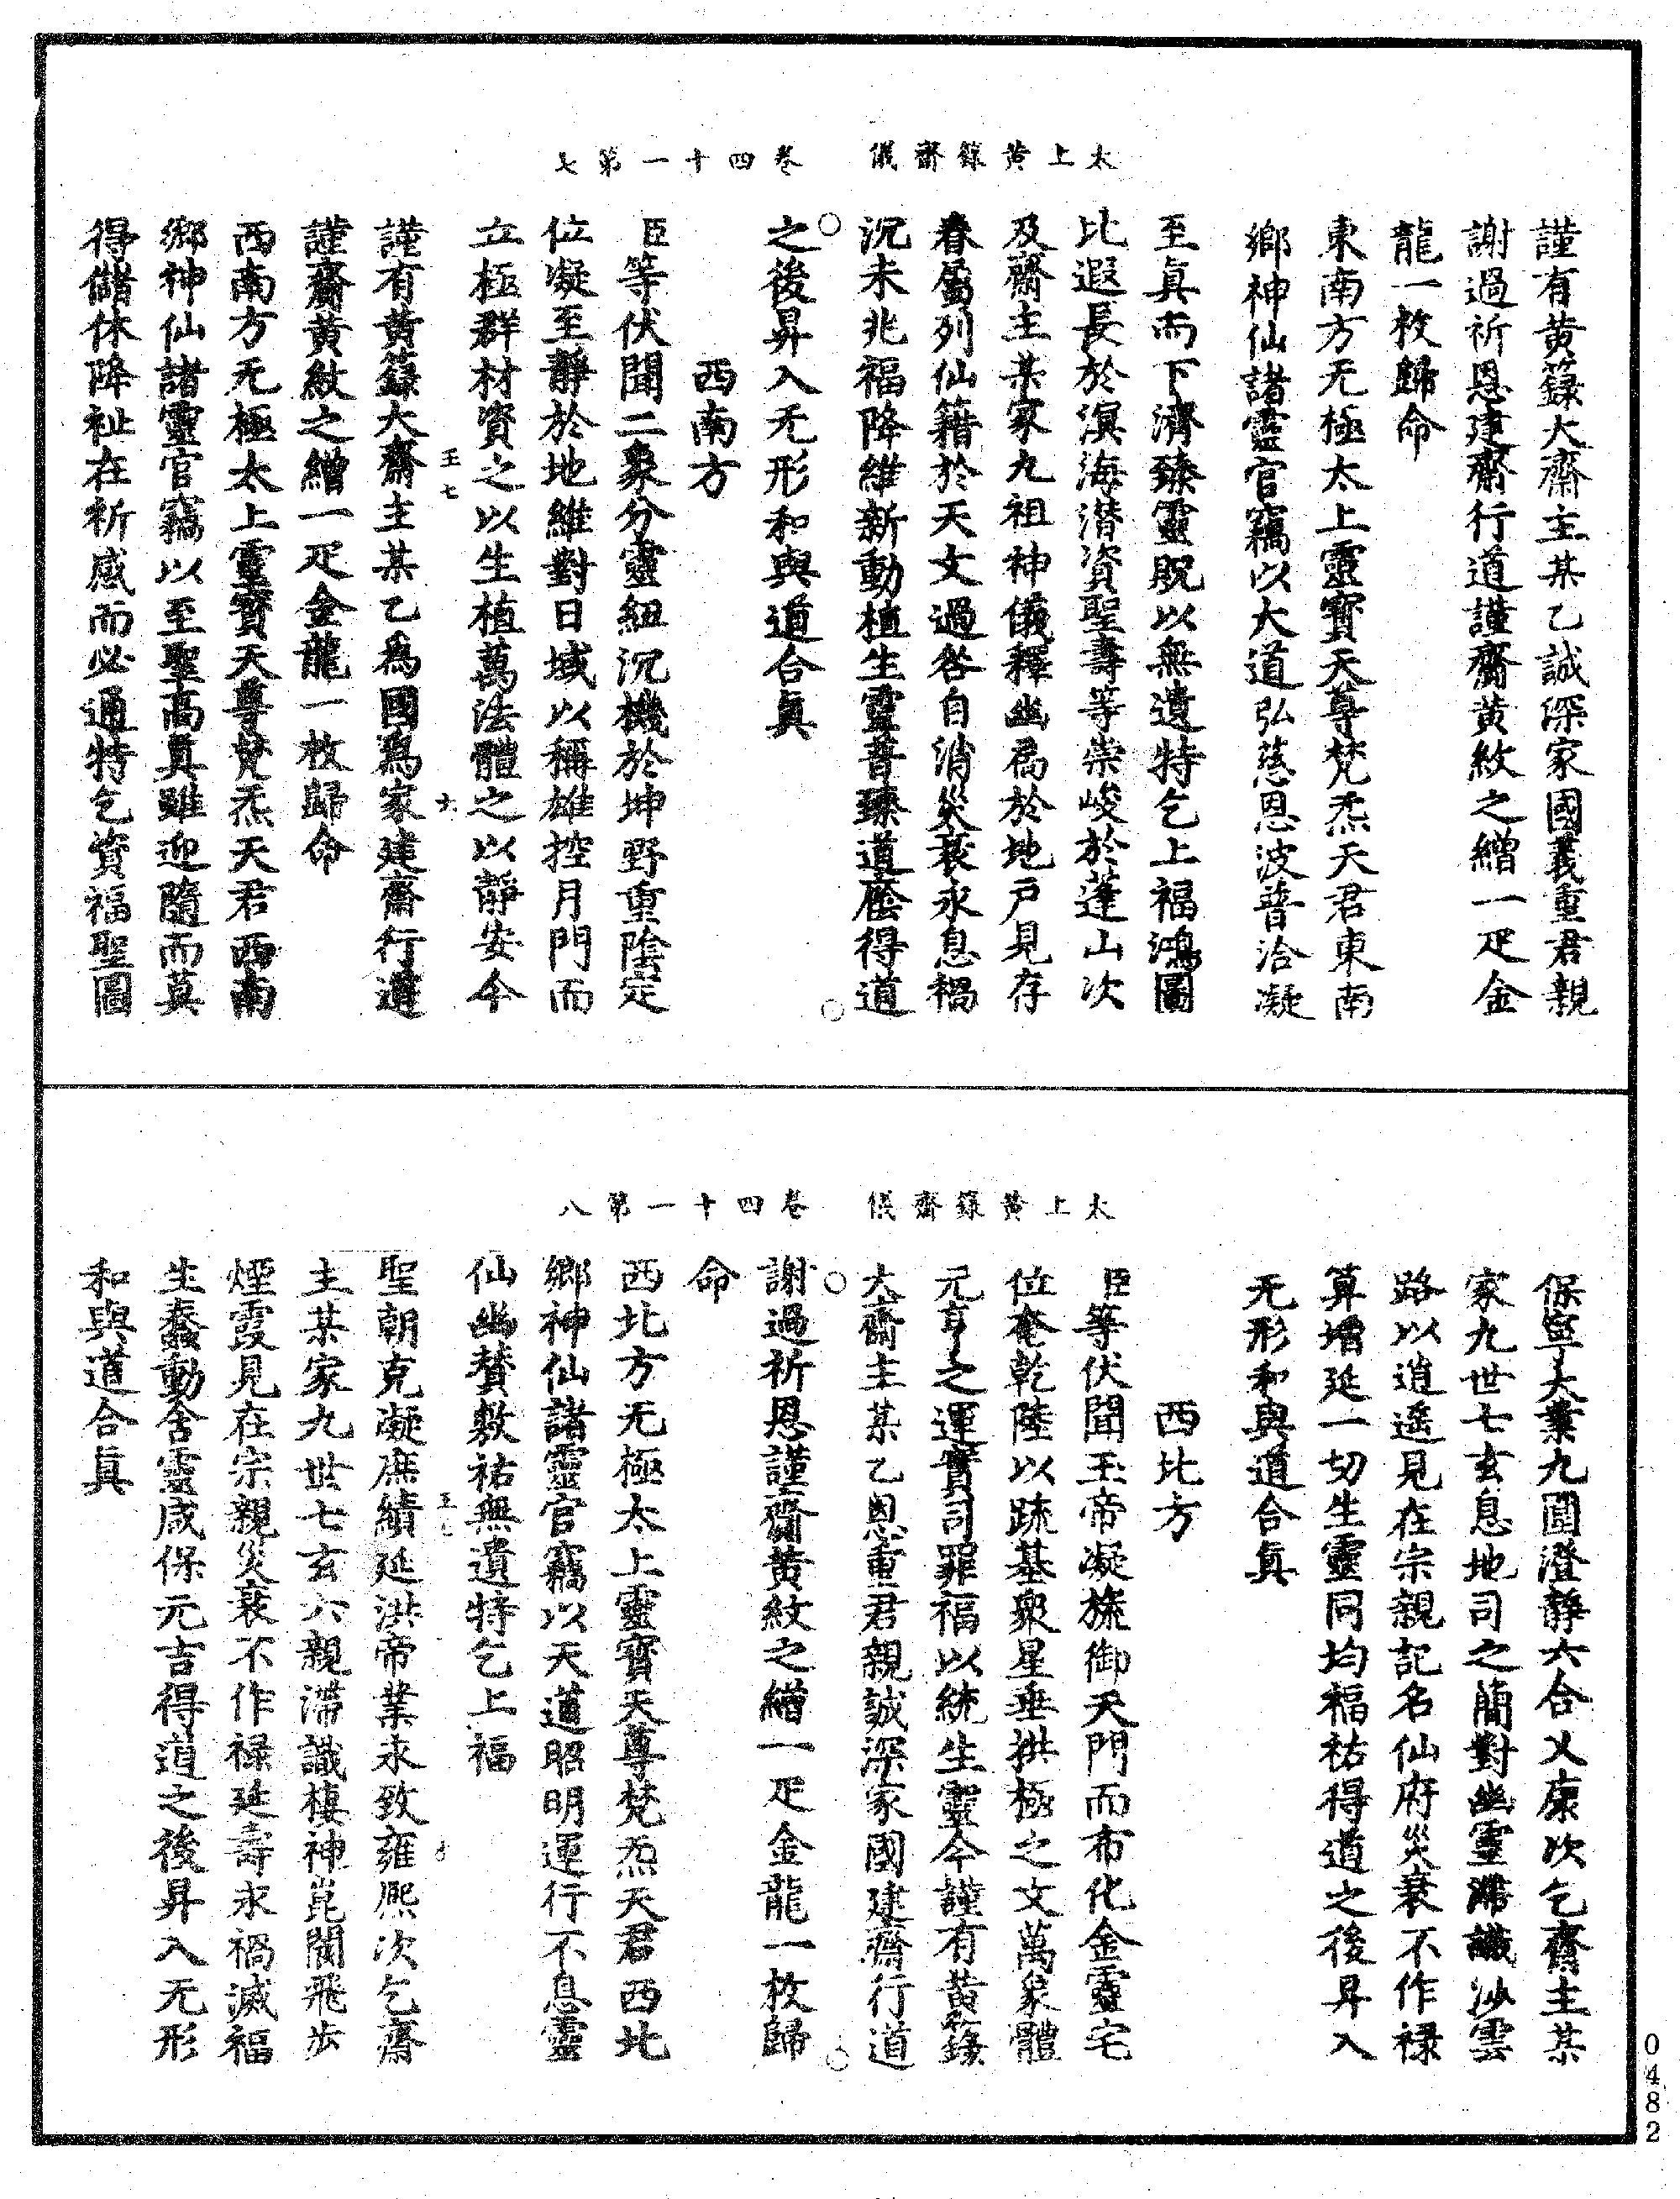 太上黄籙齋儀　卷四十一第七
謹有黄籙大齋主某乙誠深家國義重君親
謝過祈恩建齋行道謹齎黄紋之繒一疋金
龍一枚歸命
東南方无極太上靈寶天尊梵炁天君東南
鄉神仙諸靈官竊以大道弘慈恩波普洽凝
至真而下濟臻靈貺以無遺特乞上福鴻圖
比遐長於溟海潛資聖壽等崇峻於蓬山次
及齋主某家九祖神儀釋幽扃於地戶見存
眷屬列仙籍於天文過咎自消災衰永息禍
沉未兆福降維新動植生靈普臻道廕得道
之後昇入无形和與道合真
西南方
臣等伏聞二象分靈紐沉機於坤野重陰定
位凝至靜於地維對日域以稱雄控月門而
立極群材資之以生植萬法體之以靜安今
謹有黄籙大齋主某乙爲國爲家建齋行道
謹齎黄紋之繒一疋金龍一枚歸命
西南方无極太上靈寶天尊梵炁天君西南
鄉神仙諸靈官竊以至聖高真雖迎隨而莫
得儲休降祉在祈感而必通特乞資福聖圖
王七
太上黄籙齋儀　卷四十一第八
保寧大業九圍澄靜六合乂康次乞齋主某
家九世七玄息地司之簡對幽靈滯識沙雲
路以逍遥見在宗親記名仙府災衰不作禄
算增延一切生靈同均福祜得道之後昇入
无形和與道合真
西北方
臣等伏聞玉帝凝旒御天門而布化金靈宅
位奄乾陸以疏基衆星垂拱極之文萬象體
元亨之運實司罪福以統生靈今謹有黄籙
大齋主某乙恩重君親誠深家國建齋行道
謝過祈恩謹齎黄紋之繒一疋金龍一枚歸
命
西北方无極太上靈寶天尊梵炁天君西北
鄉神仙諸靈官竊以天道昭明運行不息靈
仙幽贊敷祐無遺特乞上福
聖朝克凝庶績延洪帝業永致雍熙次乞齋
主某家九世七玄六親滯識棲神崑閬飛步
煙霞見在宗親災衰不作禄延壽永禍滅福
生蠢動含靈咸保元吉得道之後昇入无形
和與道合真
0482